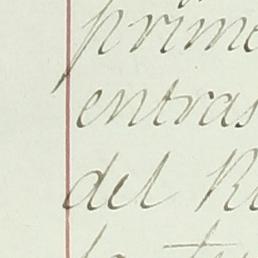 prime
entras
del R